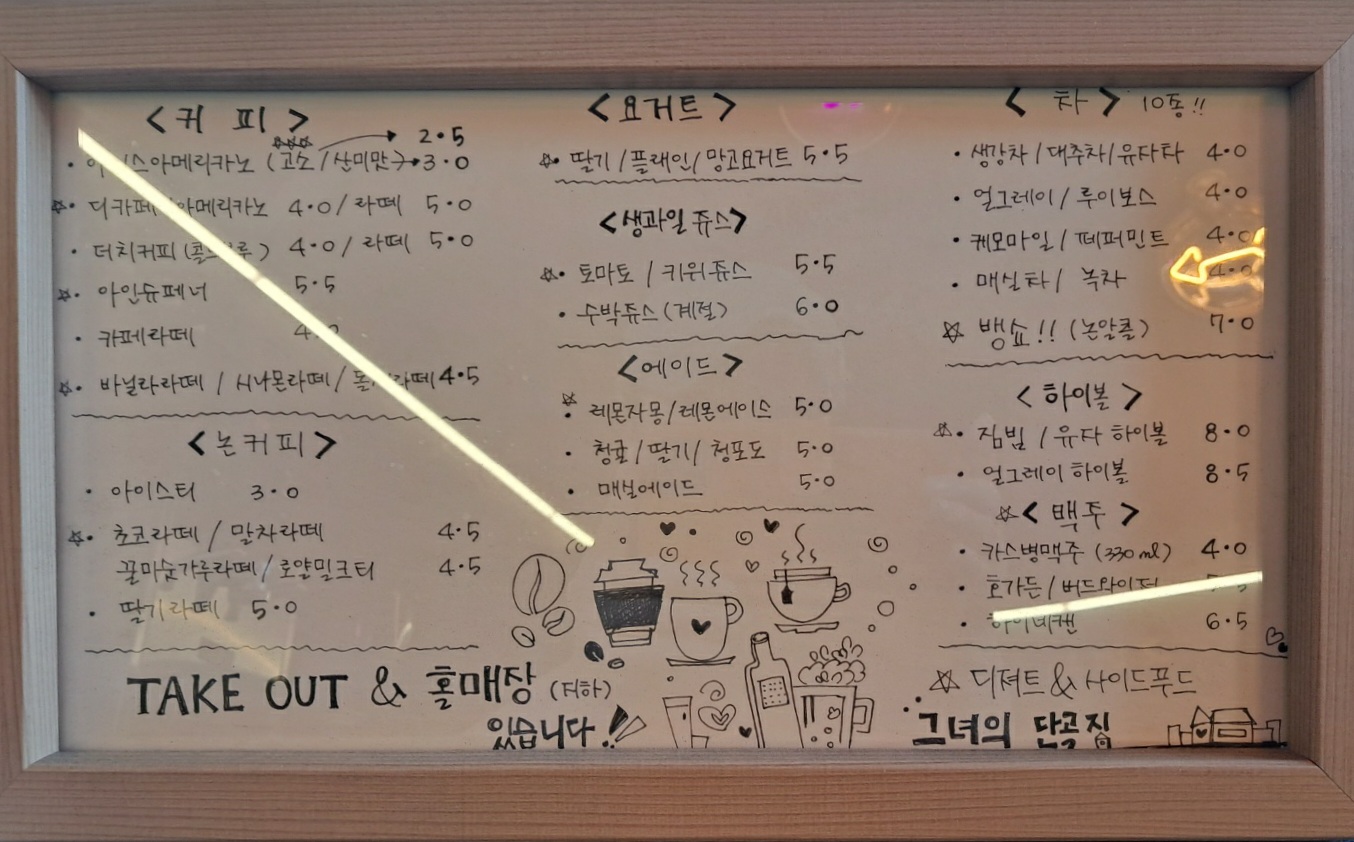 <커 피>
2.5
아이스아메리카노 (고소/산미맛)→3.0
디카페 아메리카노 4.0/라떼 5.0
더치커피(콜드브루) 4.0/라떼 5.0
아인슈페너 5.5
카페라떼
바닐라라떼 / 시나몬라떼/ 4.5
<논커피>
아이스티 3.0
초코라떼 / 말차라떼 4.5
꿀미숫가루라떼/로얄밀크티 4.5
딸기라떼 5.0
<요거트>
딸기/플래인/망고요거트 5.5
<생과일 쥬스>
토마토 / 키위쥬스 5.5
수박쥬스(계절) 6.0
<에이드>
레몬자몽/레몬에이스 5.0
청귤/딸기/청포도 5.0
매실에이드 5.0
<차> 10종!!
생강차/대추차/유자차 4.0
얼그레이/루이보스 4.0
케모마일/페퍼민트 4.0
매실차/ 녹차 4.0
뱅쇼!! (논알콜) 7.0
<하이볼>
짐빔 /유자 하이볼 8.0
얼그레이 하이볼 8.5
<맥주>
카스병맥주 (330ml) 4.0
호가든/버드와이저
하이네캔 6.5
TAKE OUT & 홀매장 (지하)
있습니다!
디저트&사이드푸드
그녀의 단골집